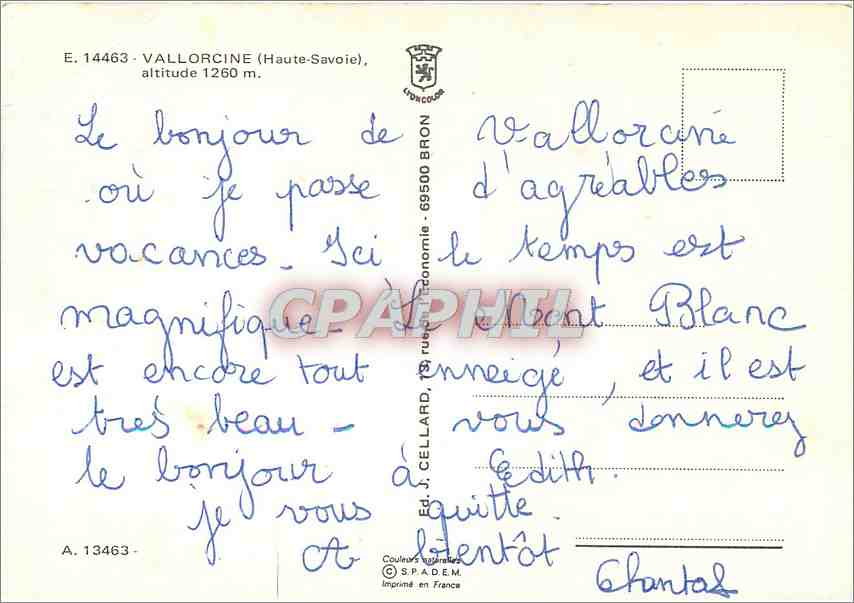 E. 14463 - VALLORCINE (Haute-Savoie),
altitude 1260 m.
LYONCOLOR
Le bonjour de Vallorcine
où je passe d'agréables
vacances - Ici le temps est
magnifique - Le Mont Blanc
est encore tout enneigé, et il est
très beau - vous donnerez
le bonjour à Edith.
je vous quitte.
A bientôt
Chantal
Ed. J. CELLARD, 13, rue de l'Economie - 69500 BRON
CPAPHIL
A. 13463 -
Couleurs naturelles
© S.P.A.D.E.M.
Imprimé en France